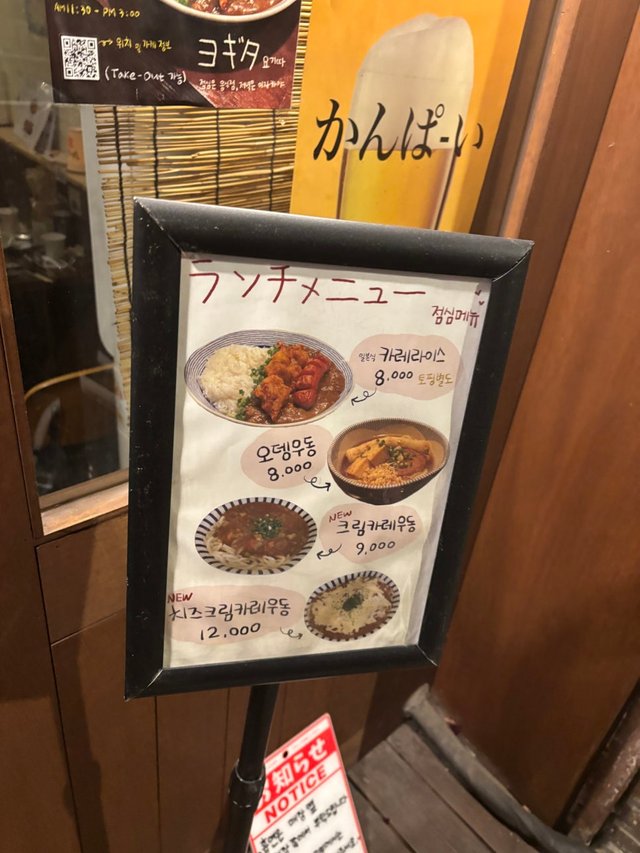 AM11:30 - PM 3:00
위치 및 가게 정보
(Take-Out 가능)
ヨギタ 요기따
かんぱーい
ランチメニュー
점심메뉴
일본식 카레라이스
8.000 토핑별도
오뎅우동
8.000
NEW
크림카레우동
9,000
NEW
치즈크림카레우동
12.000
お知らせ
NOTICE